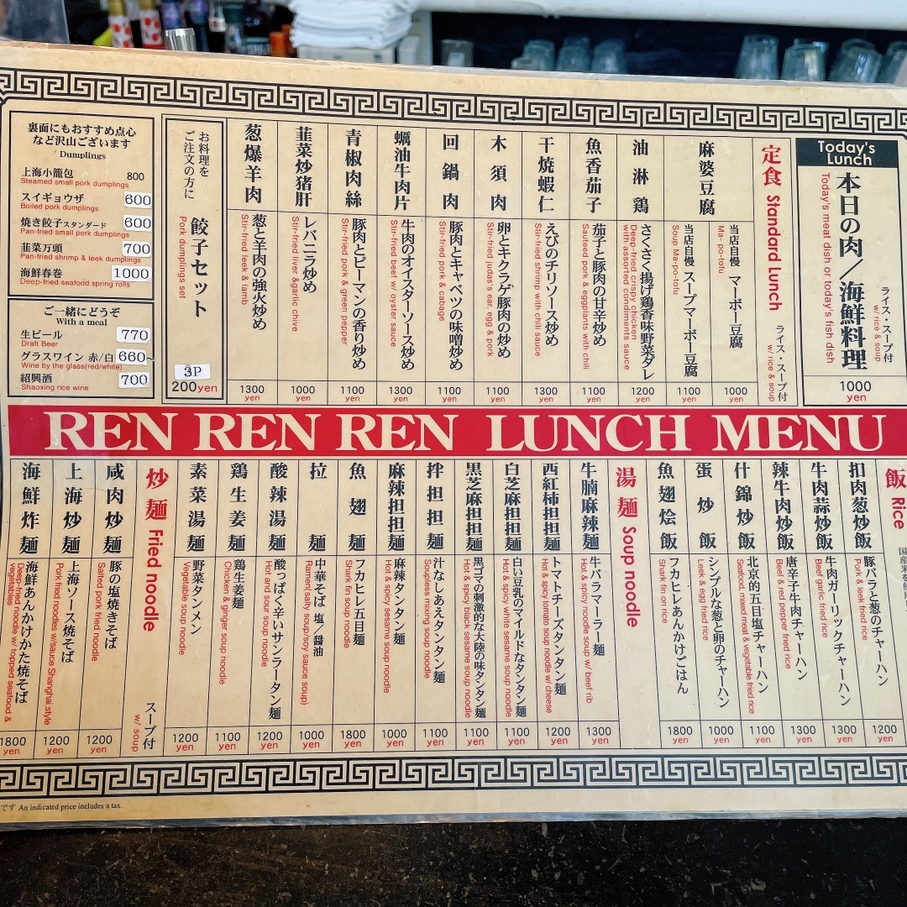 裏面にもおすすめ点心
など沢山ございます
Dumplings
上海小籠包 800
Steamed small pork dumplings
スイギョウザ 600
Boiled pork dumplings
焼き餃子スタンダード 600
Pan-fried small pork dumplings
韮菜万頭 700
Pan-fried shrimp & leek dumplings
海鮮春巻 1000
Deep-fried seafood spring rolls
ご一緒にどうぞ
With a meal
生ビール 770
Draft Beer
グラスワイン 赤/白 660
Wine by the glass(red/white)
紹興酒 700
Shaoxing rice wine
お料理を
ご注文の方に
餃子セット
Pork dumplings set
3P
200yen
葱爆羊肉
葱と羊肉の強火炒め
Stir-fried leek & lamb
1300
yen
韮菜炒猪肝
レバニラ炒め
Stir-fried liver &garlic chive
1000
yen
青椒肉絲
豚肉とピーマンの香り炒め
Stir-fried pork & green pepper
1100
yen
蠣油牛肉片
牛肉のオイスターソース炒め
Stir-fried beef w/ oyster sauce
1300
yen
回鍋肉
豚肉とキャベツの味噌炒め
Stir-fried pork & cabage
1100
yen
木須肉
卵とキクラゲ豚肉の炒め
Stir-fried judas's ear, egg & pork
1100
yen
干焼蝦仁
えびのチリソース炒め
Stir-fried shrimp with chili sauce
1300
yen
魚香茄子
茄子と豚肉の甘辛炒め
Sauteed pork & eggplants with chili
1100
yen
油淋鶏
さくさく揚げ鶏香味野菜ダレ
Deep-fried crispy chicken
with assorted condiments sauce
1200
yen
麻婆豆腐
当店自慢 スープマーボー豆腐
Soup Ma-po-tofu
1100
yen
当店自慢 マーボー豆腐
Ma- po-tofu
1000
yen
定食 Standard Lunch
ライス・スープ付
w/ rice & soup
Today's
Lunch
本日の肉/海鮮料理
Today's meat dish or today's fish dish
ライス・スープ付
w/ rice & soup
1000
yen
REN REN REN LUNCH MENU
飯 Rice
扣肉葱炒飯
豚バラと葱のチャーハン
Pork & leek fried rice
1200
yen
牛肉蒜炒飯
牛肉ガーリックチャーハン
Beef garlic fried rice
1300
yen
辣牛肉炒飯
唐辛子牛肉チャーハン
Beef & red pepper fried rice
1300
yen
什錦炒飯
北京的五目塩チャーハン
Seafood, mixed meat & vegetable fried rice
1100
yen
蛋炒飯
シンプルな葱と卵のチャーハン
Leek & egg fried rice
1000
yen
魚翅烩飯
フカヒレあんかけごはん
Shark fin on rice
1800
yen
湯麺 Soup noodle
牛腩麻辣麺
牛バラマーラー麺
Hot & spicy noodle soup w/ beef rib
1300
yen
西紅柿担担麺
トマトチーズタンタン麺
Hot & spicy tomato soup noodle w/ cheese
1200
yen
白芝麻担担麺
白い豆乳のマイルドなタンタン麺
Hot & spicy white sesame soup noodle
1100
yen
黒芝麻担担麺
黒ゴマの刺激的な大陸の味タンタン麺
Hot & spicy black sesame soup noodle
1100
yen
拌担担麺
汁なしあえタンタン麺
Soupless mixing soup noodle
1100
yen
麻辣担担麺
麻辣タンタン麺
Hot & spicy sesame soup noodle
1000
yen
魚翅麺
フカヒレ五目麺
Shark fin soup noodle
1800
yen
拉麺
中華そば 塩/醤油
Ramen( salt soup/soy sauce soup)
1000
yen
酸辣湯麺
酸っぱく辛いサンラータン麺
Hot and sour soup noodle
1200
yen
鶏生姜麺
鶏生姜麺
Chicken & ginger soup noodle
1100
yen
素菜湯麺
野菜タンメン
Vegetable soup noodle
1200
yen
炒麺 Fried noodle
スープ付
w/ soup
咸肉炒麺
豚の塩焼きそば
Salted pork fried noodle
1200
yen
上海炒麺
上海ソース焼そば
Pork fried noodles w/sauce Shanghai style
1200
yen
海鮮炸麺
海鮮あんかけかた焼そば
Deep-fried noodle w/ topped seafood &
vegetables
1800
yen
です An indicated price includes a tax.